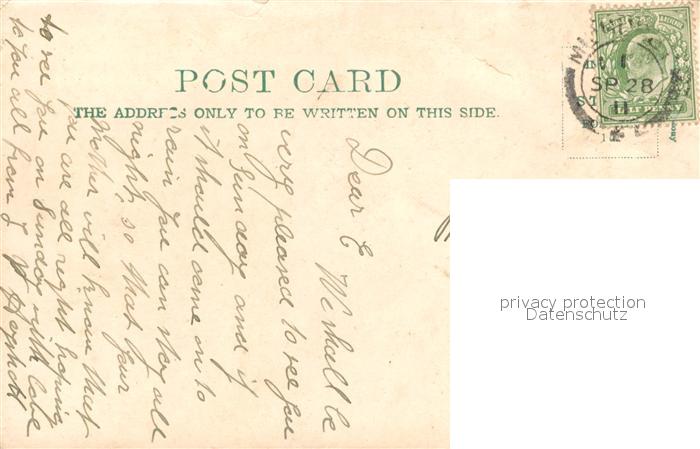 POST CARD
THE ADDRESS ONLY TO BE WRITTEN ON THIS SIDE.
SP 28
11
Dear E We shall be
very pleased to see you
on Sunday and if
it should come on to
rain you can stay all
night, so that your
Mother will know that
you are all right hoping
to see you on Sunday with love
to you all from J
privacy protection
Datenschutz